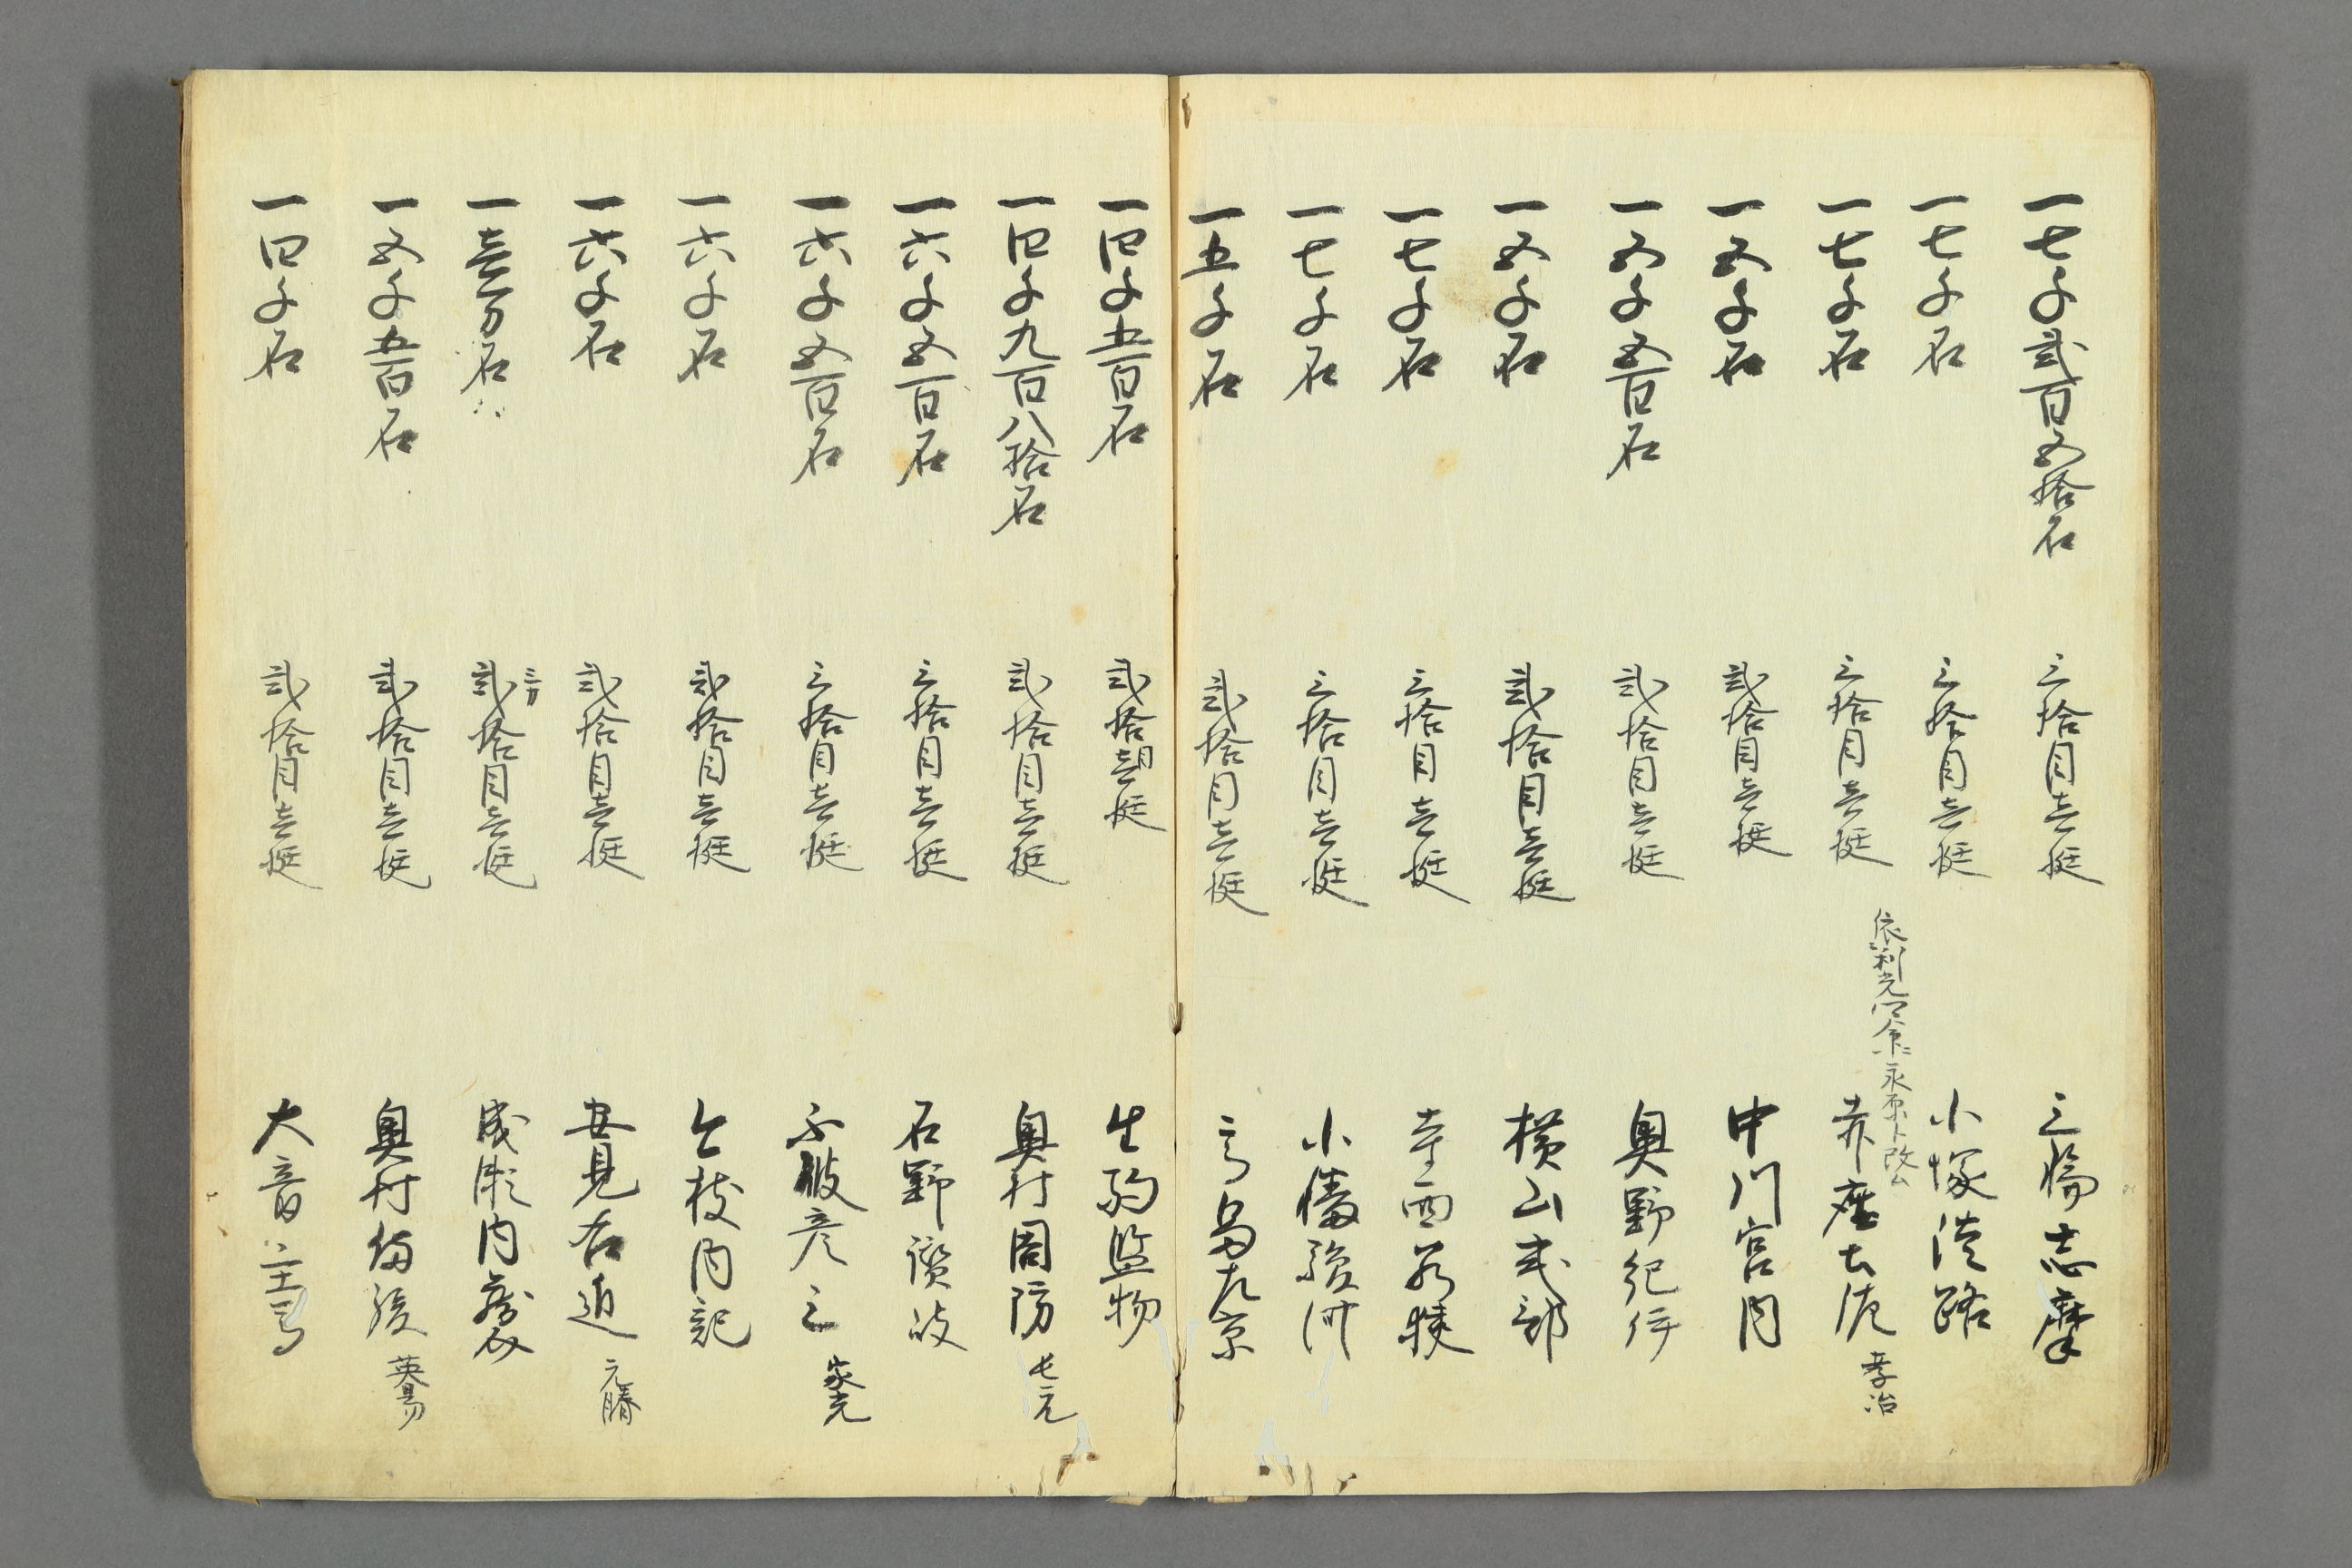 一七千弐百五拾石 三拾目壱挺 三輪志摩
一七千石 三拾目壱挺 小塚淡路
依利光公命ニ永原ト改ム
一七千石 三拾目壱挺 赤座土佐 孝治
一五千石 弐拾目壱挺 中川宮内
一五千五百石 弐拾目壱挺 奥野紀伊
一五千石 弐拾目壱挺 横山式部
一七千石 三拾目壱挺 寺西若狭
一七千石 三拾目壱挺 小幡駿河
一五千石 弐拾目壱挺 高畠左京
一四千五百石 弐拾目壱挺 生駒監物
一四千九百八拾石 弐拾目壱挺 奥村周防 長元
一六千五百石 三拾目壱挺 石野讃岐
一六千五百石 三拾目壱挺 不破彦三 家光
一六千石 弐拾目壱挺 今枝内記
一六千石 弐拾目壱挺 安見右近 元勝
一壱万石 弐拾目壱挺 成瀬内蔵
一五千五百石 弐拾目壱挺 奥村備後 英昜
一四千石 弐拾目壱挺 大音主馬